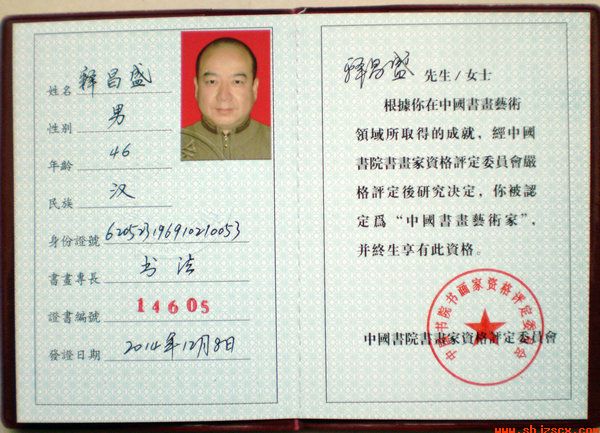 姓名 释昌盛
性别 男
年龄 46
民族 汉
身份證號 620523196910210053
書畫專長 书法
證書編號 14605
發證日期 2014年12月8日
释昌盛 先生/女士
根據你在中國書畫藝術
領域所取得的成就，經中國
書院書畫家資格評定委員會嚴
格評定後研究决定，你被認
定爲“中國書畫藝術家”，
并終生享有此資格。
中国书院书画家资格评定委员会
中國書院書畫家資格評定委員會
www.shjzscx.com